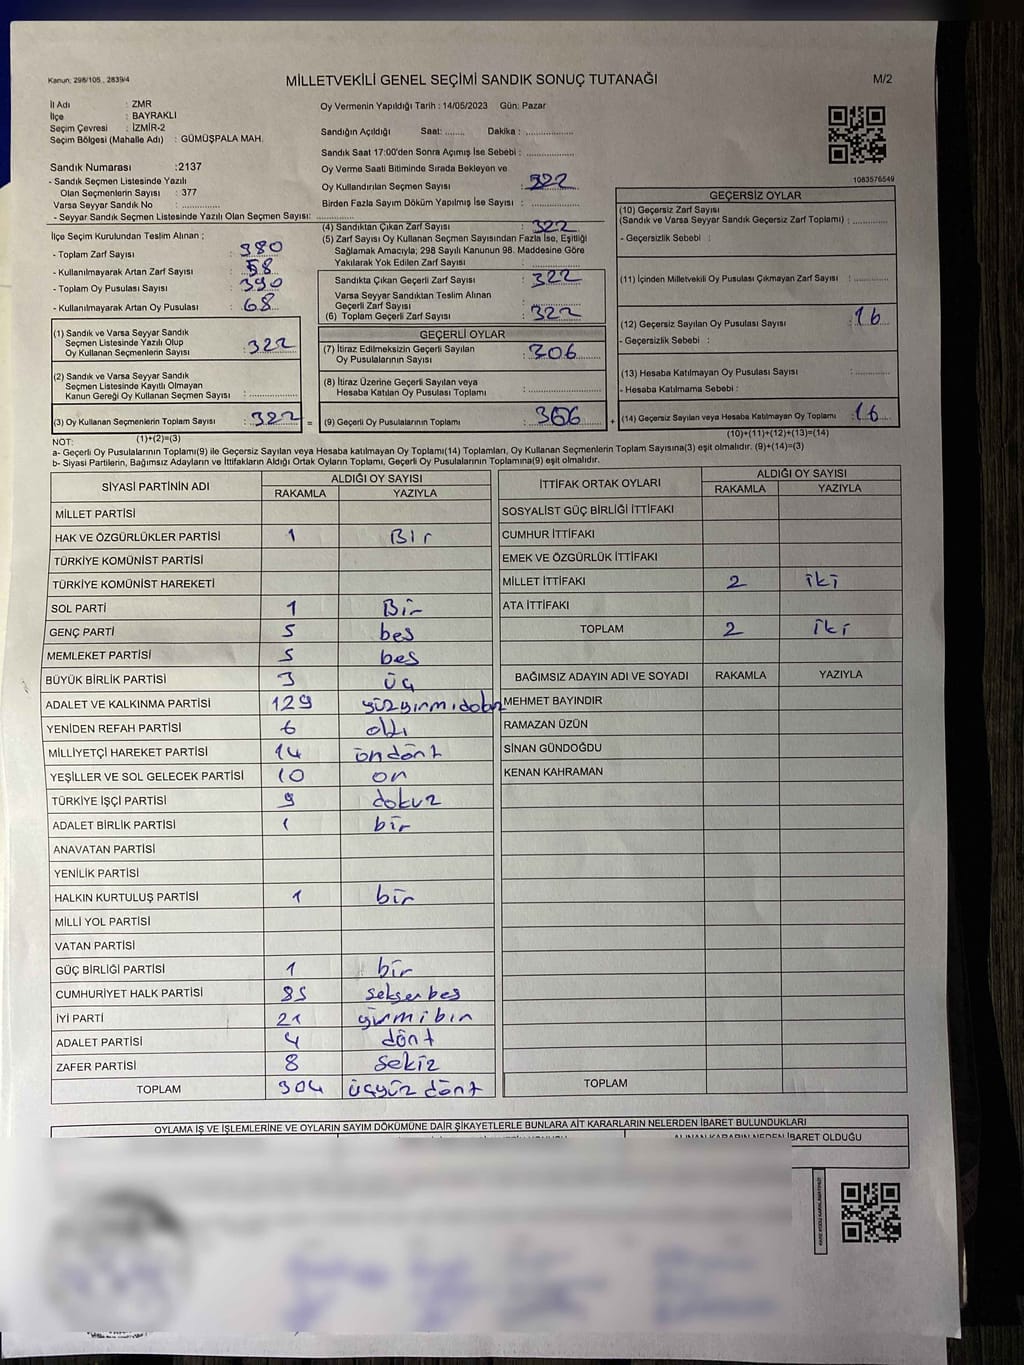 Kanun: 298/105 , 2839/4
MİLLETVEKİLİ GENEL SEÇİMİ SANDIK SONUÇ TUTANAĞI
M/2
İl Adı : ZMR
İlçe : BAYRAKLI
Seçim Çevresi : İZMİR-2
Seçim Bölgesi (Mahalle Adı) : GÜMÜŞPALA MAH.
Sandık Numarası :2137
- Sandık Seçmen Listesinde Yazılı
Olan Seçmenlerin Sayısı : 377
Varsa Seyyar Sandık No : ..............
- Seyyar Sandık Seçmen Listesinde Yazılı Olan Seçmen Sayısı: ..............
Oy Vermenin Yapıldığı Tarih : 14/05/2023 Gün: Pazar
Sandığın Açıldığı Saat: ....... Dakika : ................
Sandık Saat 17:00'den Sonra Açımış İse Sebebi : ................
Oy Verme Saati Bitiminde Sırada Bekleyen ve
Oy Kullandırılan Seçmen Sayısı : 322
Birden Fazla Sayım Döküm Yapılmış İse Sayısı : ................
1083576549
İlçe Seçim Kurulundan Teslim Alınan ;
- Toplam Zarf Sayısı : 380
- Kullanılmayarak Artan Zarf Sayısı : 58
- Toplam Oy Pusulası Sayısı : 390
- Kullanılmayarak Artan Oy Pusulası : 68
(1) Sandık ve Varsa Seyyar Sandık
Seçmen Listesinde Yazılı Olup
Oy Kullanan Seçmenlerin Sayısı : 322
(2) Sandık ve Varsa Seyyar Sandık
Seçmen Listesinde Kayıtlı Olmayan
Kanun Gereği Oy Kullanan Seçmen Sayısı : ..............
(3) Oy Kullanan Seçmenlerin Toplam Sayısı : 322 =
(4) Sandıktan Çıkan Zarf Sayısı : 322
(5) Zarf Sayısı Oy Kullanan Seçmen Sayısından Fazla İse, Eşitliği
Sağlamak Amacıyla; 298 Sayılı Kanunun 98. Maddesine Göre
Yakılarak Yok Edilen Zarf Sayısı : ................
Sandıkta Çıkan Geçerli Zarf Sayısı : 322
Varsa Seyyar Sandıktan Teslim Alınan
Geçerli Zarf Sayısı : ................
(6) Toplam Geçerli Zarf Sayısı : 322
GEÇERLİ OYLAR
(7) İtiraz Edilmeksizin Geçerli Sayılan
Oy Pusulalarının Sayısı : 306
(8) İtiraz Üzerine Geçerli Sayılan veya
Hesaba Katılan Oy Pusulası Toplamı : ................
(9) Geçerli Oy Pusulalarının Toplamı : +
GEÇERSİZ OYLAR
(10) Geçersiz Zarf Sayısı
(Sandık ve Varsa Seyyar Sandık Geçersiz Zarf Toplamı) : ............
- Geçersizlik Sebebi :
(11) İçinden Milletvekili Oy Pusulası Çıkmayan Zarf Sayısı : ............
(12) Geçersiz Sayılan Oy Pusulası Sayısı : 16
- Geçersizlik Sebebi :
(13) Hesaba Katılmayan Oy Pusulası Sayısı : ............
- Hesaba Katılmama Sebebi :
(14) Geçersiz Sayılan veya Hesaba Katılmayan Oy Toplamı : 16
NOT: (1)+(2)=(3)
(10)+(11)+(12)+(13)=(14)
a- Geçerli Oy Pusulalarının Toplamı(9) ile Geçersiz Sayılan veya Hesaba katılmayan Oy Toplamı(14) Toplamları, Oy Kullanan Seçmenlerin Toplam Sayısına(3) eşit olmalıdır. (9)+(14)=(3)
b- Siyasi Partilerin, Bağımsız Adayların ve İttifakların Aldığı Ortak Oyların Toplamı, Geçerli Oy Pusulalarının Toplamına(9) eşit olmalıdır.
SİYASİ PARTİNİN ADI ALDIĞI OY SAYISI
RAKAMLA YAZIYLA
MİLLET PARTİSİ
HAK VE ÖZGÜRLÜKLER PARTİSİ 1 Bir
TÜRKİYE KOMÜNİST PARTİSİ
TÜRKİYE KOMÜNİST HAREKETİ
SOL PARTİ 1 Bir
GENÇ PARTİ 5 beş
MEMLEKET PARTİSİ 5 beş
BÜYÜK BİRLİK PARTİSİ 3 üç
ADALET VE KALKINMA PARTİSİ 129
YENİDEN REFAH PARTİSİ 6 altı
MİLLİYETÇİ HAREKET PARTİSİ 14 ondört
YEŞİLLER VE SOL GELECEK PARTİSİ 10 on
TÜRKİYE İŞÇİ PARTİSİ 9 dokuz
ADALET BİRLİK PARTİSİ 1 bir
ANAVATAN PARTİSİ
YENİLİK PARTİSİ
HALKIN KURTULUŞ PARTİSİ 1 bir
MİLLİ YOL PARTİSİ
VATAN PARTİSİ
GÜÇ BİRLİĞİ PARTİSİ 1 bir
CUMHURİYET HALK PARTİSİ 85 seksenbeş
İYİ PARTİ 21 yirmibir
ADALET PARTİSİ 4 dört
ZAFER PARTİSİ 8 sekiz
TOPLAM 304 üçyüz dört
İTTİFAK ORTAK OYLARI ALDIĞI OY SAYISI
RAKAMLA YAZIYLA
SOSYALİST GÜÇ BİRLİĞİ İTTİFAKI
CUMHUR İTTİFAKI
EMEK VE ÖZGÜRLÜK İTTİFAKI
MİLLET İTTİFAKI 2 iki
ATA İTTİFAKI
TOPLAM 2 iki
BAĞIMSIZ ADAYIN ADI VE SOYADI RAKAMLA YAZIYLA
MEHMET BAYINDIR
RAMAZAN ÜZÜN
SİNAN GÜNDOĞDU
KENAN KAHRAMAN
TOPLAM
OYLAMA İŞ VE İŞLEMLERİNE VE OYLARIN SAYIM DÖKÜMÜNE DAİR ŞİKAYETLERLE BUNLARA AİT KARARLARIN NELERDEN İBARET BULUNDUKLARI
ALINAN KARARIN NEDEN İBARET OLDUĞU